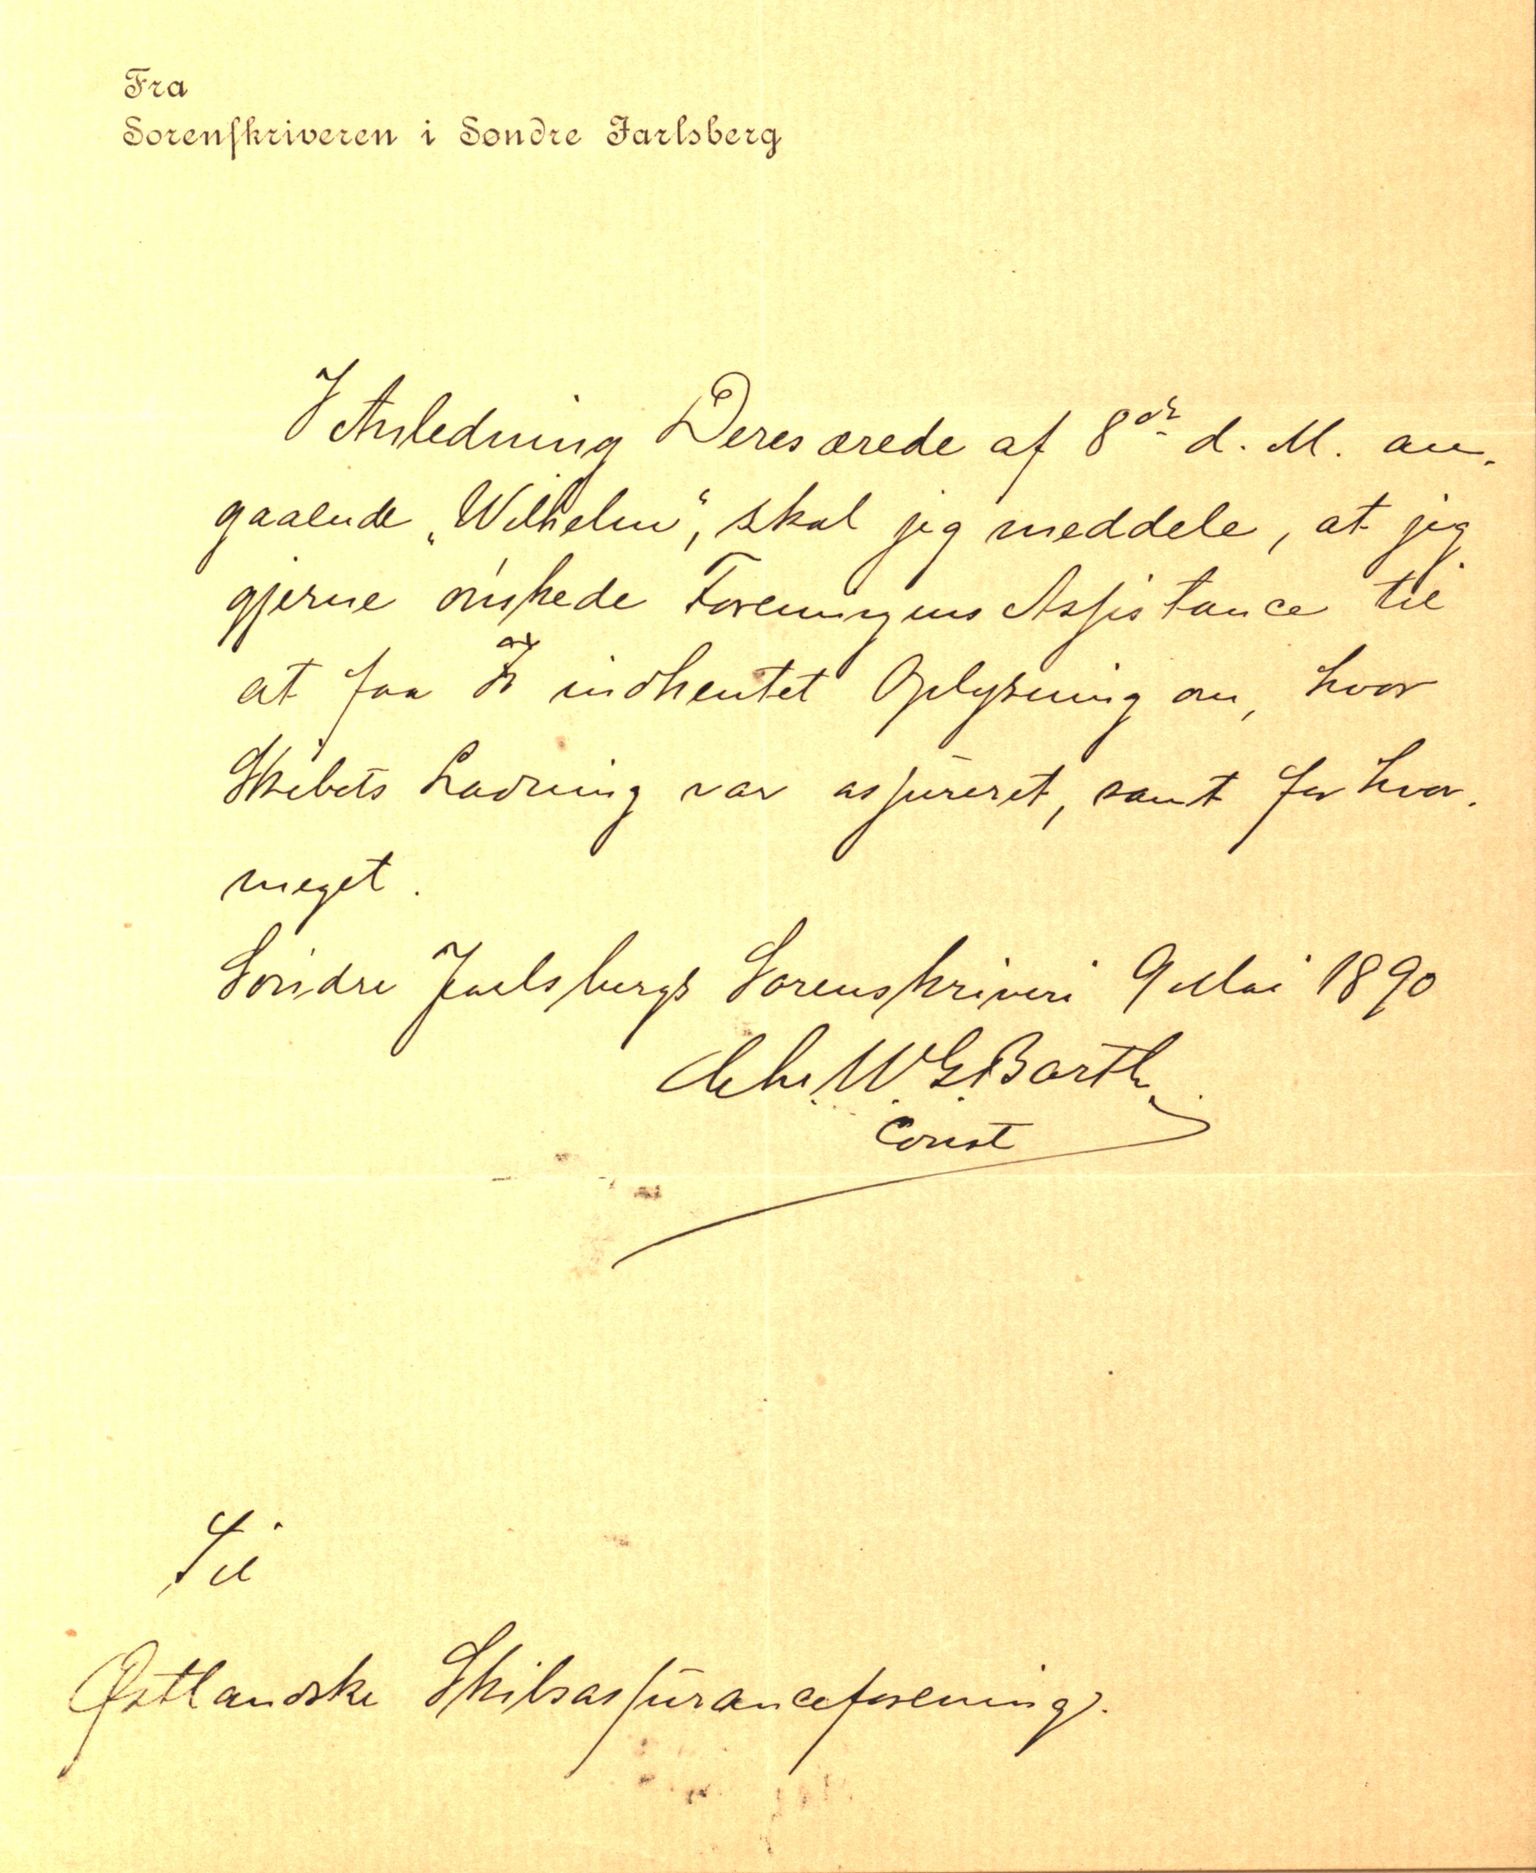 Fra
Sorenskriveren i Søndre Jarlsberg
I Anledning Deres ærede af 8de d. M. an-
gaaende „Wilhelm“, skal jeg meddele, at jeg
gjerne ønskede Foreningens Assistance til
at faa indhentet Oplysning om, hvor
Skibets Ladning var assureret, samt for hvor-
meget.
Søndre Jarlsbergs Sorenskriveri 9 Mai 1890
W. G. Barth
const
Til
Østlandske Skibsassuranceforening.